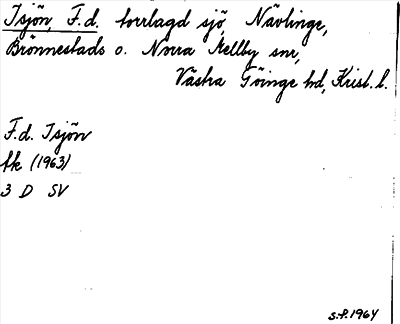 Isjön, F.d. torrlagd sjö, Nävlinge,
Brönnestads o. Norra Mellby snr,
Västra Göinge hd, Krist. l.
F.d. Isjön
tk (1963)
3 D SV
S.F. 1964